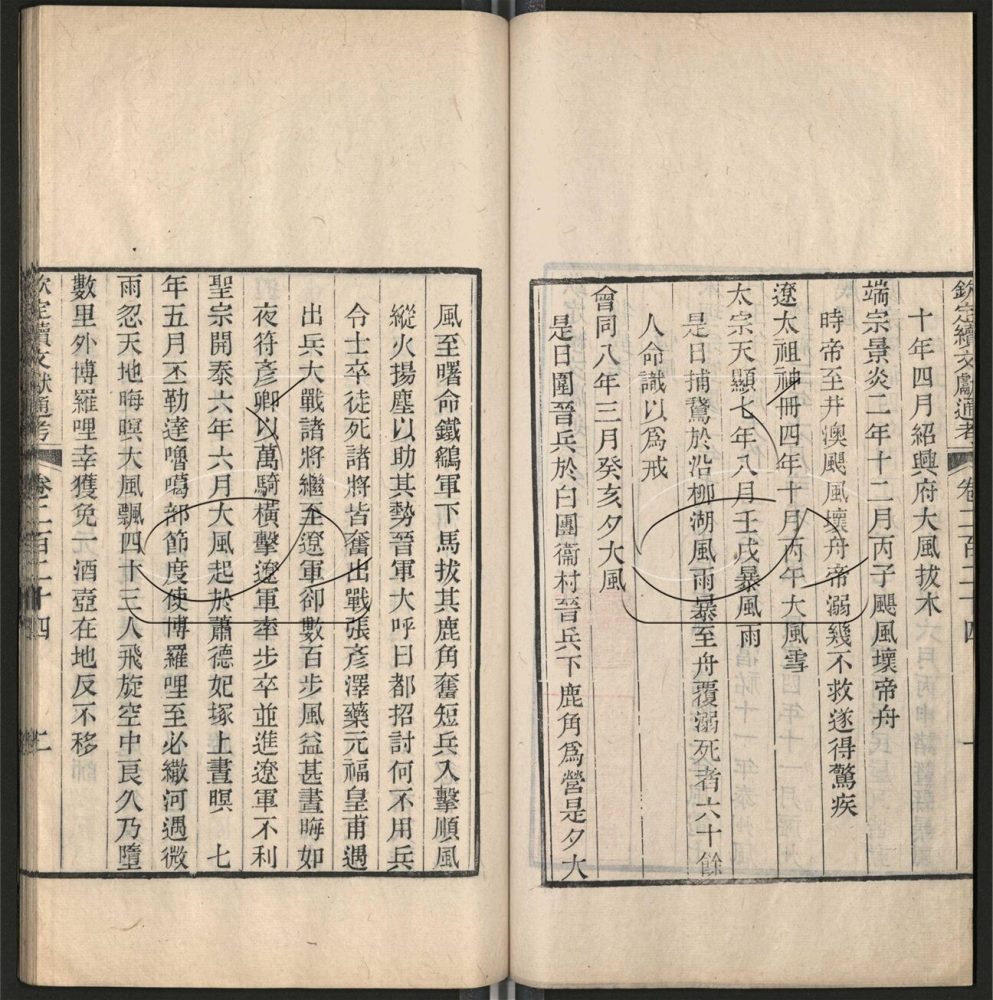 欽定續文獻通考 卷二百二十四 一
十年四月紹興府大風拔木
端宗景炎二年十二月丙子颶風壞帝舟
時帝至井澳颶風壞舟帝溺幾不救遂得驚疾
遼太祖神冊四年十月丙午大風雪
太宗天顯七年八月壬戌暴風雨
是日捕鵞於沿柳湖風雨暴至舟覆溺死者六十餘
人命識以為戒
會同八年三月癸亥夕大風
是日圍晉兵於白團衞村晉兵下鹿角為營是夕大
風至曙命鐵鷂軍下馬拔其鹿角奮短兵入擊順風
縱火揚塵以助其勢晉軍大呼曰都招討何不用兵
令士卒徒死諸將皆奮出戰張彥澤藥元福皇甫遇
出兵大戰諸將繼至遼軍卻數百步風益甚晝晦如
夜符彥卿以萬騎橫擊遼軍率步卒並進遼軍不利
聖宗開泰六年六月大風起於蕭德妃塚上晝暝 七
年五月丕勒達嚕噶部節度使博羅哩至必繖河遇微
雨忽天地晦暝大風飄四十三人飛旋空中良久乃墮
數里外博羅哩幸獲免一酒壺在地反不移
欽定續文獻通考 卷二百二十四 二